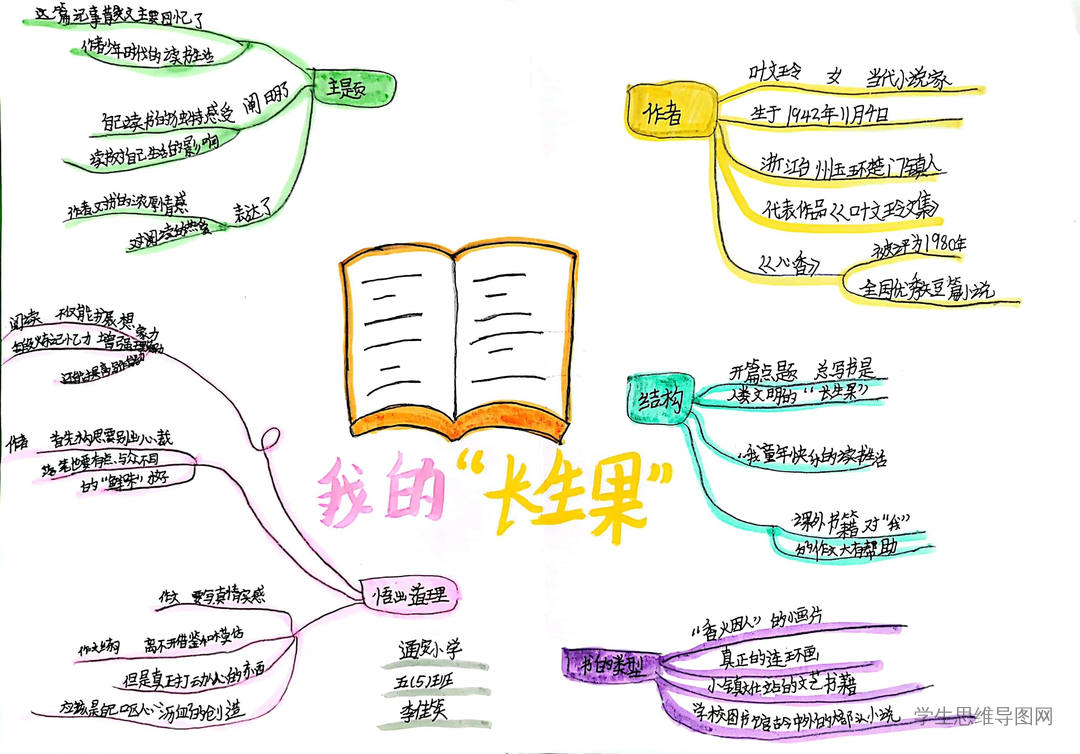 我的“长生果”
主题
这篇记事散文主要回忆了
作者少年时代的读书生活
阐明了
自己读书的独特感受
读书对自己生活的影响
表达了
作者对书的浓厚情感
对阅读的热爱
作者
叶文玲 女 当代小说家
生于1942年11月4日
浙江台州玉环楚门镇人
代表作品《叶文玲文集》
《心香》
被评为1980年
全国优秀短篇小说
结构
开篇点题 总写书是
人类文明的“长生果”
我童年快乐的读书生活
课外书籍对“我”
的作文大有帮助
书的类型
“香火因人”的小画片
真正的连环画
小镇文化站的文艺书籍
学校图书馆古今中外的大部头小说
悟出道理
阅读 不仅能扩展想象力
记忆力 增强理解力
作者 首先构思要别出心裁
落笔也要有点与众不同
的“鲜味”才好
作文 要写真情实感
作文练习 离不开借鉴和模仿
但是真正打动人心的东西
应该是自己呕心沥血的创造
通安小学
五(5)班
学生思维导图网